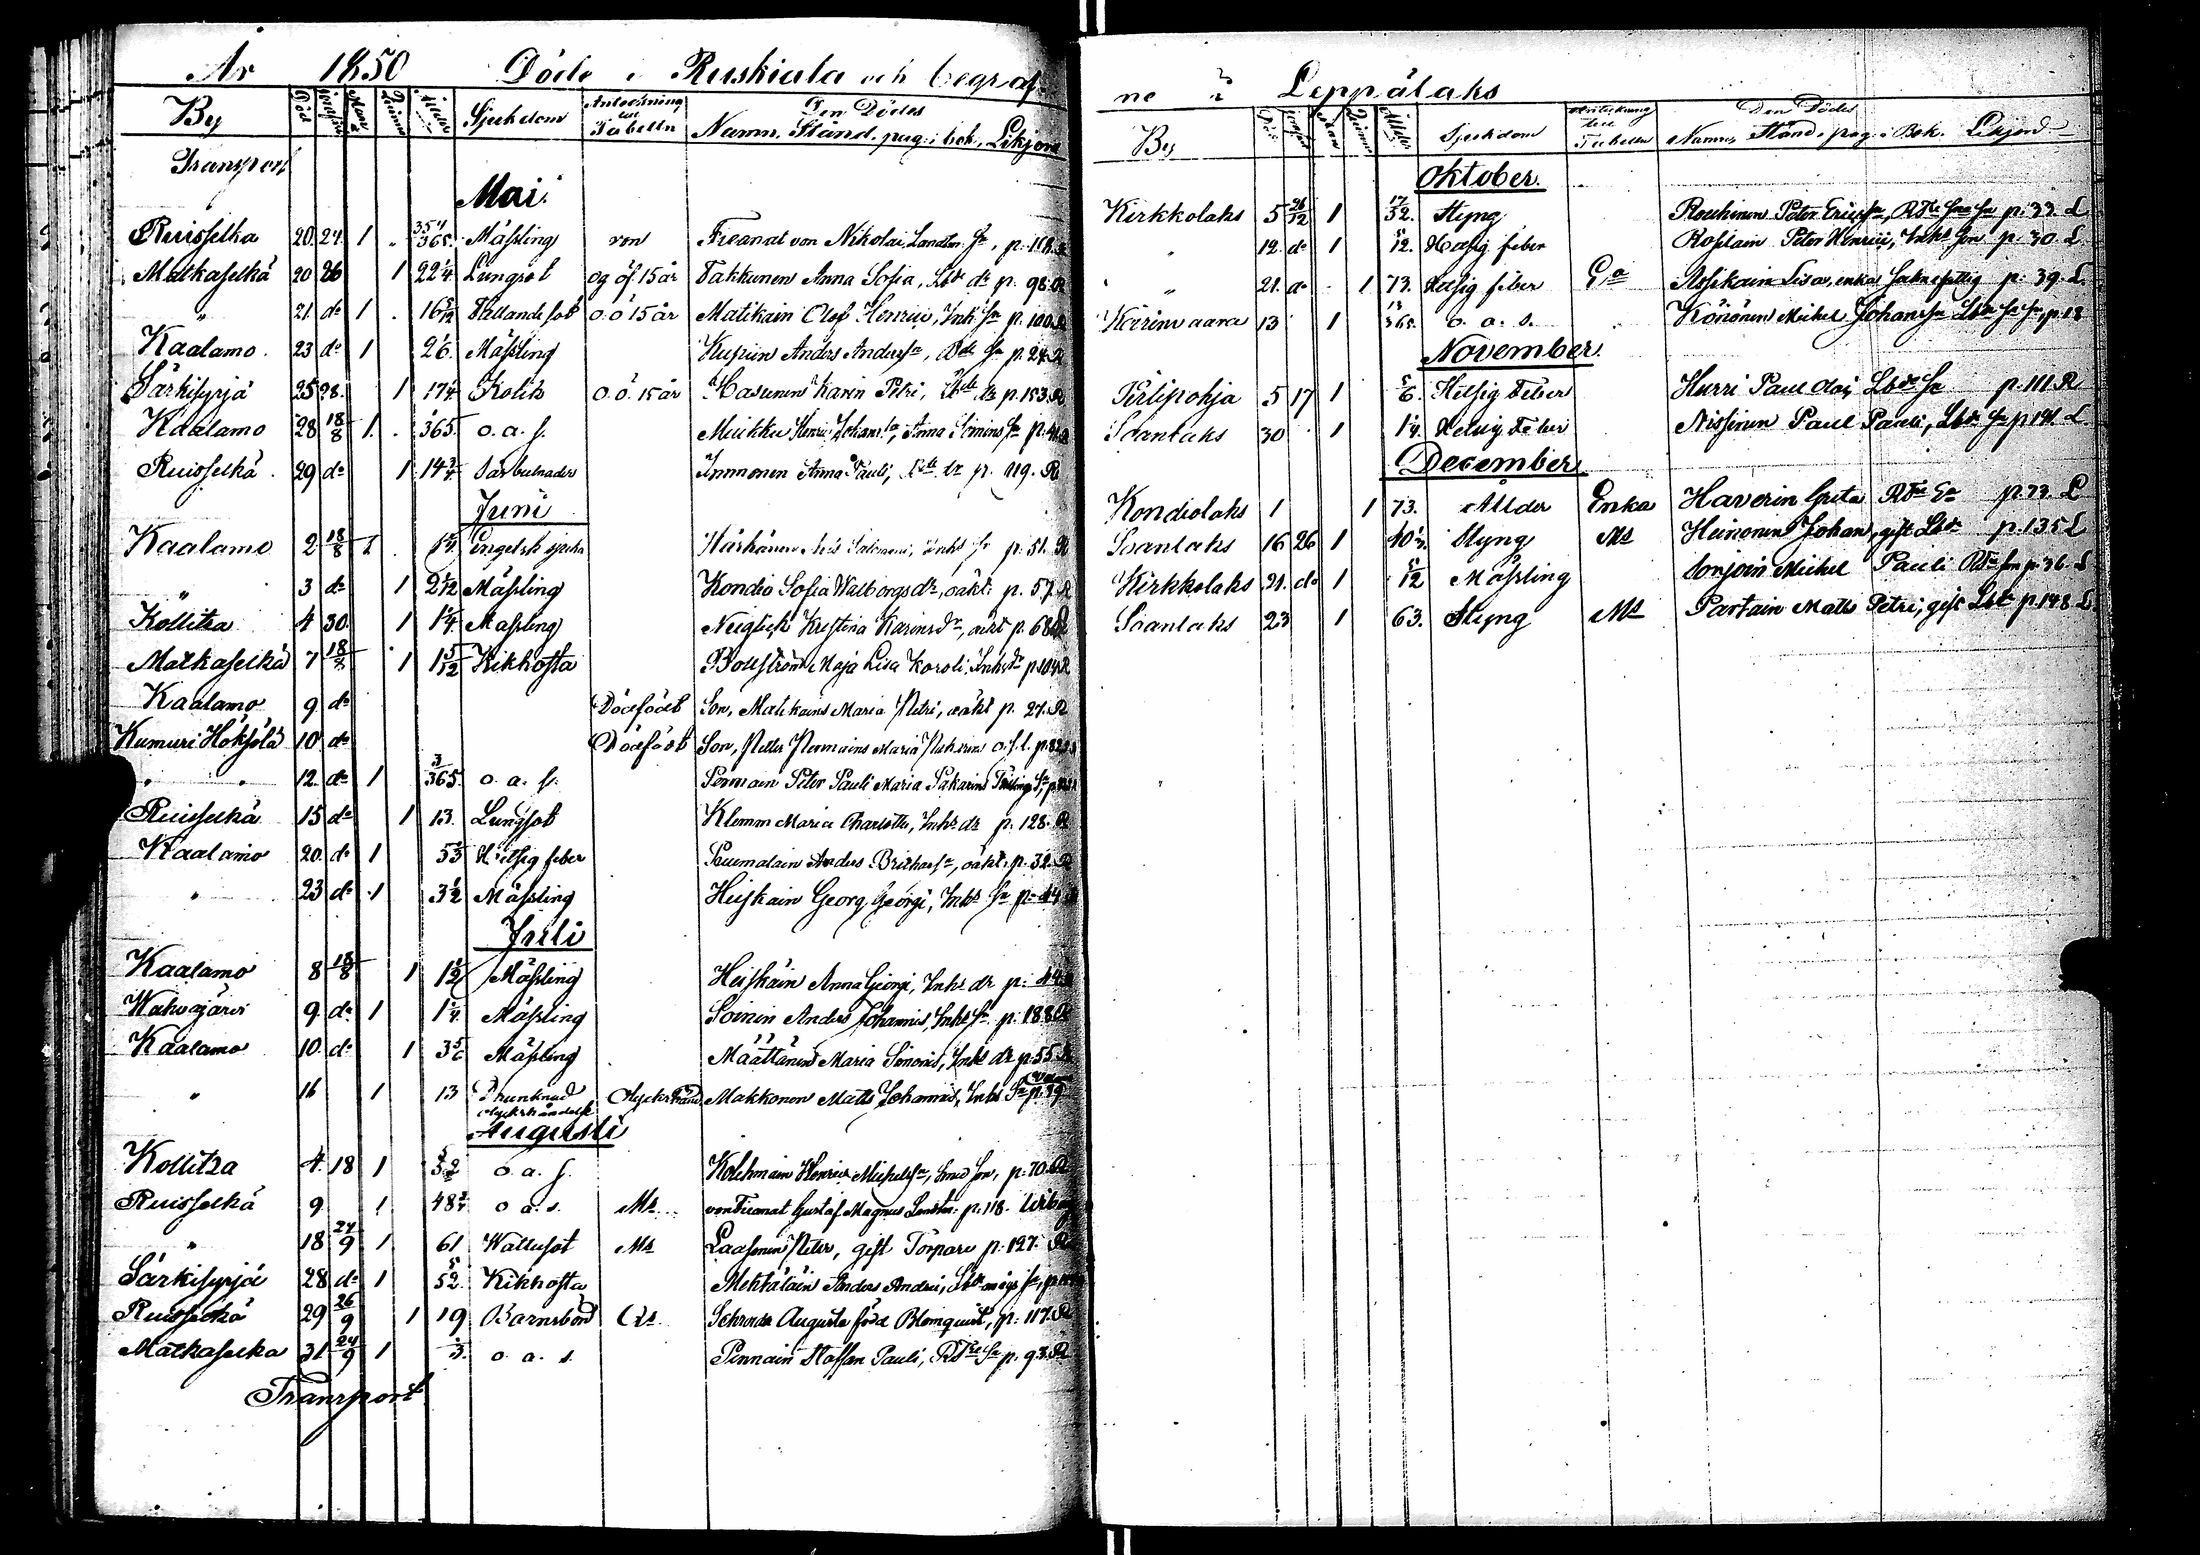 År 1850 Döde i Ruskiala och begraf-
By Död Man Qvinn Ålder Sjukdom Anteckning till Tabelln Den Dödes Namn, Stånd, pag. i bok, Likjord
Transport
Mai.
Ruisselka 20 24 1 354/365 Mässling von Fieanat von Nikolai, Landtm. Sn, p. 118. R
Matkaselkä 20 26 1 22 1/4 Lungsot og öf 15 år Takkunen Anna Sofia, Lbde dr p. 98. R
" 21 do 1 16 5/12 Fallandesot o. ö 15 år Matikain Olof Henrici, Inhs Sn p. 100. R
Kaalamo. 23 do 1 26. Mässling Kupiin Anders Anders Sn, Bde Sn p. 24. R
Särkisyrjä 25 28. 1 17 1/4 Kolik o. ö. 15 år Hasunen Karin Petri, dr p. 153. R
Kaalamo 28 18/8 1. 1/365 o. a. s. Muikku Henric Johans Sn, Anna Simins Sn p. R
Ruisselkä 29 do 1 14 3/4 Sarbulnader Immonen Anna Pauli, dr p. 119. R
Juni
Kaalamo 2 18/8 1 1 1/4 Engelsk sjuka Salomoni, Inhs Sn p. 51. R
" 3 do 1 2 1/12 Mässling Kondio Sofia Walborgs dr, oäkt: p. 57. R
Kollitza 4 30. 1 1 1/4 Massling Neiglick Kristina Karins dr, oäkt p. 68 R
Matkaselkä 7 18/8 1 1 5/12 Kikhosta Bollström Maja Lisa Karoli Inhs dr p. 104. R
Kaalamo 9 do Dödfödt Son, Matikains Maria Petri, oäkt p. 27. R
Kumuri Höksölä 10 do Dödfödt Son, Petter Permains Maria
" " 12. do 1 3/365. o. a. s. Permain Peter Pauli Maria Pakarins Tvilling Sn,
Ruisselkä 15 do 1 13. Lungsot Klemm Maria Charlotta, Inhs dr p. 128. R
Kaalamo 20. do 1 5 1/3 Hetsig feber Puumalain Anders Brithas Sn, oäkt: p. 32. R
" 23 do 1 3 1/2 Mässling Heiskain Georg Georgi, Inhs Sn p. 44. R
Juli
Kaalamo 8 18/8 1 1 1/2 Mässling Heiskain Anna Georgi, Inhs dr p. 44.
Wahvajärvi 9 do 1 1 1/4 Mässling Soinin Anders Johannis, Inhs Sn p. 188 R
Kaalamo 10. do 1 3 5/6 Mässling Määttänen Maria Simonis, Inhs dr p. 55. R
" 16 1 13 Drunknad olyckshändelse Olyckshänd. Makkonen Matts Johannis, Inhs Sn p. 39
Augusti
Kollitza 4. 18 1 5/52 o. a. s. Kolehmain Henric Michels Sn, Smed Son, p. 70. R
Ruisselkä 9 1 48 3/4 o a. s. Ms von Fieanat Gustaf Magnus Landtm: p. 118. Wiborg
" 18 24/9 1 61 Wattusot Ms Laasonen Peter, gift Torpare p. 127. R
Särkisyrjä 28 do 1 5/52. Kikhosta Mehtäläin Anders Andrei,
Ruisselkä 29 26/9 1 19 Barnsbörd Schroeder Augusta född Blomquist, p. 117. R
Matkaselka 31 24/9 1 1/3. o. a. s. Pinnain Staffan Pauli, Sn p. 93. R
Transport
ne i Leppälaks
By Död Man Qvinn Ålder Sjukdom Anteckning till Tabellen Den Dödes Namn, Stånd, pag. i Bok. Likjord
Oktober.
Kirkkolaks 5 26/12 1 17/52. Styng Peter Erics Sn, p. 33. L
" 12. do 1 5/12. Hetsig feber Rossain Peter Henrici, Inhs Son p. 30. L
" 21. do 1 73. Hetsig feber Ea Assikain Lisa, enka p. 39. L
Karimvaara 13 1 13/365. o. a. s. Könönen Michel Johans Sn p. 18
November.
Pirtipohja 5 17 1 5/6. Hetsig Feber Hurri Paul Lbde Sn p. 111. R
Soanlaks 30 1 1 1/4. Hetsig Feber Nissinen Paul Pauli, Lbde Sn p. 141. L
December
Kondiolaks 1 1 73. Ålder Enka Haverin Greta p. 73. L
Soanlaks 16 26 1 40 1/3. Styng Ms Heinonen Johan, gift Lbde p. 135 L
Kirkkolaks 21. do 1 5/12 Mässling Sonjoin Michel Pauli Sn p. 36. L
Soanlaks 23 1 63. Styng Ms Partain Matts Petri, gift Lbde p. 148. L